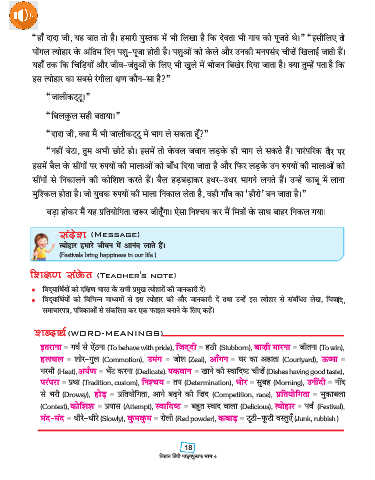 “हाँ दादा जी, यह बात तो है। हमारी पुस्तक में भी लिखा है कि देवता भी गाय को पूजते थे।” “इसीलिए तो
पोंगल त्योहार के अंतिम दिन पशु-पूजा होती है। पशुओं को केले और उनकी मनपसंद चीजें खिलाई जाती हैं।
यहाँ तक कि चिड़ियों और जीव-जंतुओं के लिए भी खुले में भोजन बिखेर दिया जाता है। क्या तुम्हें पता है कि
इस त्योहार का सबसे रंगीला क्षण कौन-सा है?”
“जालीकट्टू।”
“बिलकुल सही बताया।”
“दादा जी, क्या मैं भी जालीकट्टू में भाग ले सकता हूँ?”
“नहीं बेटा, तुम अभी छोटे हो। इसमें तो केवल जवान लड़के ही भाग ले सकते हैं। पारंपरिक तौर पर
इसमें बैल के सींगों पर रुपयों की मालाओं को बाँध दिया जाता है और फिर लड़के उन रुपयों की मालाओं को
सींगों से निकालने की कोशिश करते हैं। बैल हड़बड़ाकर इधर-उधर भागने लगते हैं। उन्हें काबू में लाना
मुश्किल होता है। जो युवक रुपयों की माला निकाल लेता है, वही गाँव का ‘हीरो’ बन जाता है।”
बड़ा होकर मैं यह प्रतियोगिता जरूर जीतूँगा। ऐसा निश्चय कर मैं मित्रों के साथ बाहर निकल गया।
संदेश (MESSAGE)
त्योहार हमारे जीवन में आनंद लाते हैं।
(Festivals bring happiness in our life.)
शिक्षण संकेत (TEACHER'S NOTE)
• विद्यार्थियों को दक्षिण भारत के सभी प्रमुख त्योहारों की जानकारी दें।
• विद्यार्थियों को विभिन्न माध्यमों से इस त्योहार की और जानकारी दें तथा उन्हें इस त्योहार से संबंधित लेख, चित्र,
समाचारपत्र, पत्रिकाओं से संकलित कर एक फाइल बनाने के लिए कहें।
शब्दार्थ (WORD-MEANINGS)
इतराना = गर्व से ऐंठना (To behave with pride), जिद्दी = हठी (Stubborn), बाजी मारना = जीतना (To win),
हलचल = शोर-गुल (Commotion), उमंग = जोश (Zeal), आँगन = घर का अहाता (Courtyard), ऊष्मा =
गरमी (Heat), अर्पण = भेंट करना (Dedicate), पकवान = खाने की स्वादिष्ट चीजें (Dishes having good taste),
परंपरा = प्रथा (Tradition, custom), निश्चय = तय (Determination), भोर = सुबह (Morning), उनींदी = नींद
से भरी (Drowsy), होड़ = प्रतियोगिता, आगे बढ़ने की जिद (Competition, race), प्रतियोगिता = मुकाबला
(Contest), कोशिश = प्रयास (Attempt), स्वादिष्ट = बहुत स्वाद वाला (Delicious), त्योहार = पर्व (Festival),
मंद-मंद = धीरे-धीरे (Slowly), कुमकुम = रोली (Red powder), कबाड़ = टूटी-फूटी वस्तुएँ (Junk, rubbish)
18